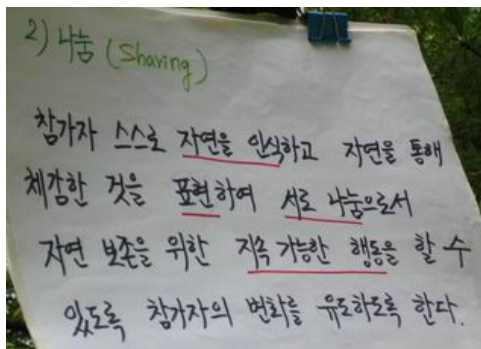 2) 나눔 (Sharing)
참가자 스스로 자연을 인식하고 자연을 통해
체감한 것을 표현하여 서로 나눔으로서
자연 보존을 위한 지속 가능한 행동을 할 수
있도록 참가자의 변화를 유도하도록 한다.